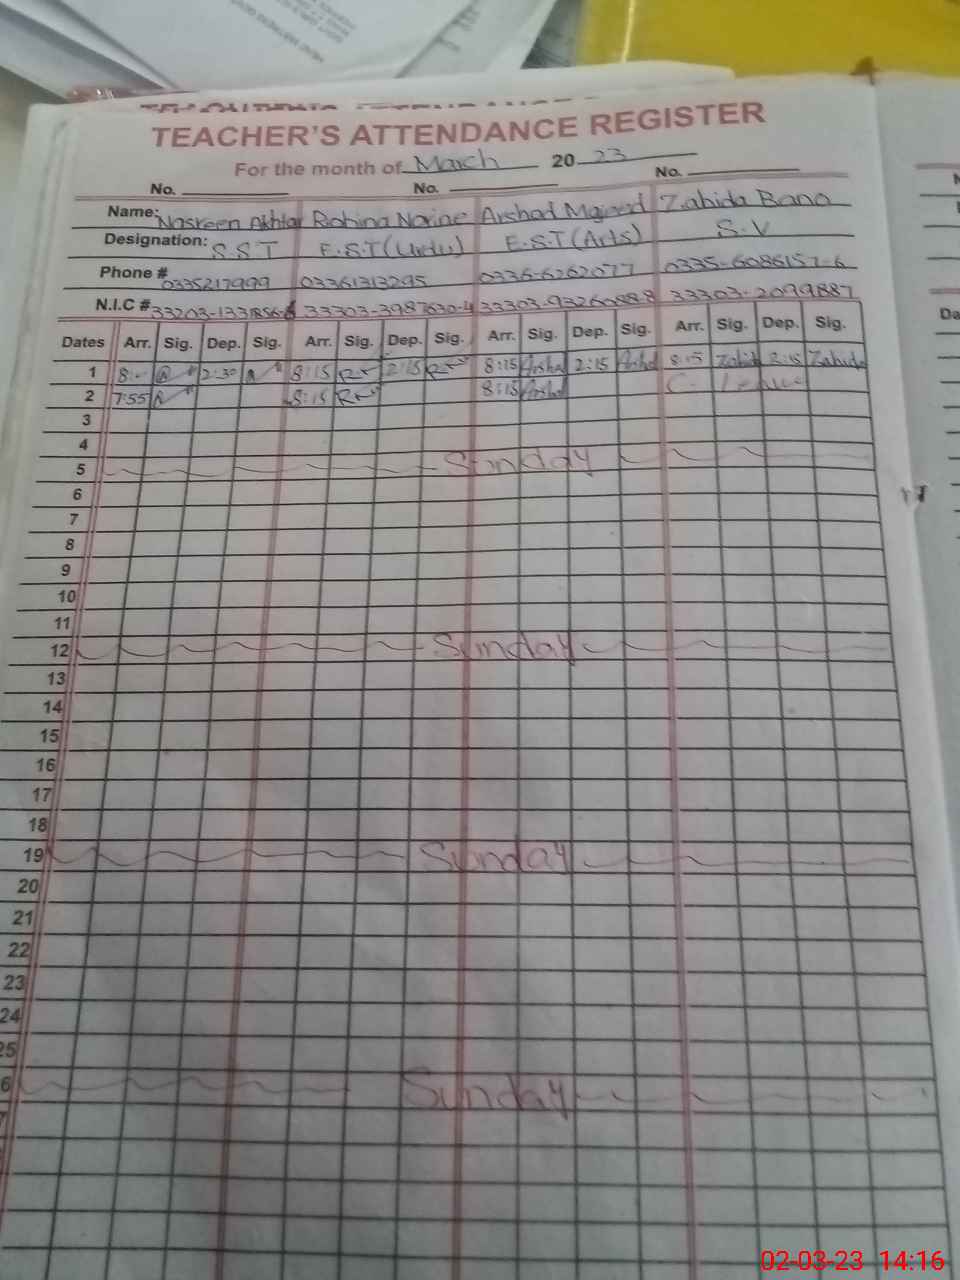 TEACHER'S ATTENDANCE REGISTER
For the month of March 20 23
No. No. No.
Name: Nasreen Akhtar Robina Nariae Arshad Majeed Zahida Bano
Designation: S.S.T E.S.T (Urdu) E.S.T (Arts) S.V
Phone # 0335217999 03361313295 0336-6262077 0335-6086157-6
N.I.C # 33203-1331856-8 33303-3987630-4 33303-9326088-8 33303-2099887
Dates Arr. Sig. Dep. Sig. Arr. Sig. Dep. Sig. Arr. Sig. Dep. Sig. Arr. Sig. Dep. Sig.
1 8:- 2:30 8:15 2:15 8:15 Arshad 2:15 Arshad 8:15 Zahida 2:15 Zahida
2 7:55 8:15 8:15 Arshad C. Leave
3
4
5 Sunday
6
7
8
9
10
11
12 Sunday
13
14
15
16
17
18
19 Sunday
20
21
22
23
24
25
6 Sunday
02-03-23 14:16